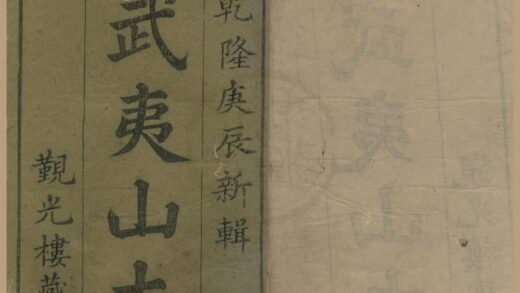 乾隆庚辰新輯
武夷山
觀光樓藏